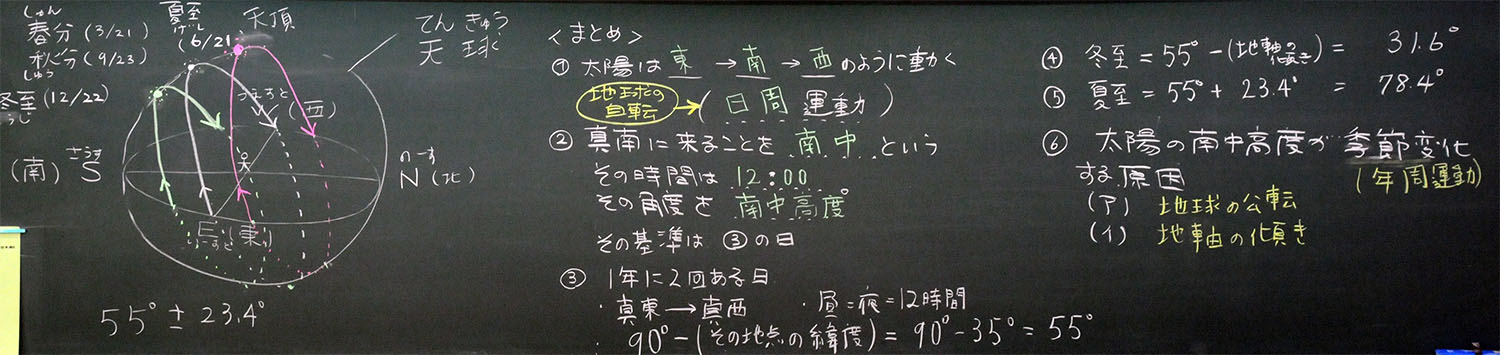 しゅん
春分(3/21)
秋分(9/23)
しゅう
冬至(12/22)
うじ
夏至
げし
(6/21)
天頂
てんきゅう
天球
うえすと
W(西)
(南)
さうす
S
のーす
N(北)
いーすと
E(東)
55°±23.4°
<まとめ>
① 太陽は 東→南→西のように動く
地球の自転→(日周運動)
② 真南に来ることを 南中 という
その時間は 12:00
その角度を 南中高度
その基準は③の日
③ 1年に2回ある日
・真東→真西 ・昼=夜=12時間
・90°-(その地点の緯度)=90°-35°=55°
④ 冬至=55°-(地軸の傾き)= 31.6°
⑤ 夏至=55°+23.4° = 78.4°
⑥ 太陽の南中高度が季節変化
する原因 (年周運動)
(ア) 地球の公転
(イ) 地軸の傾き